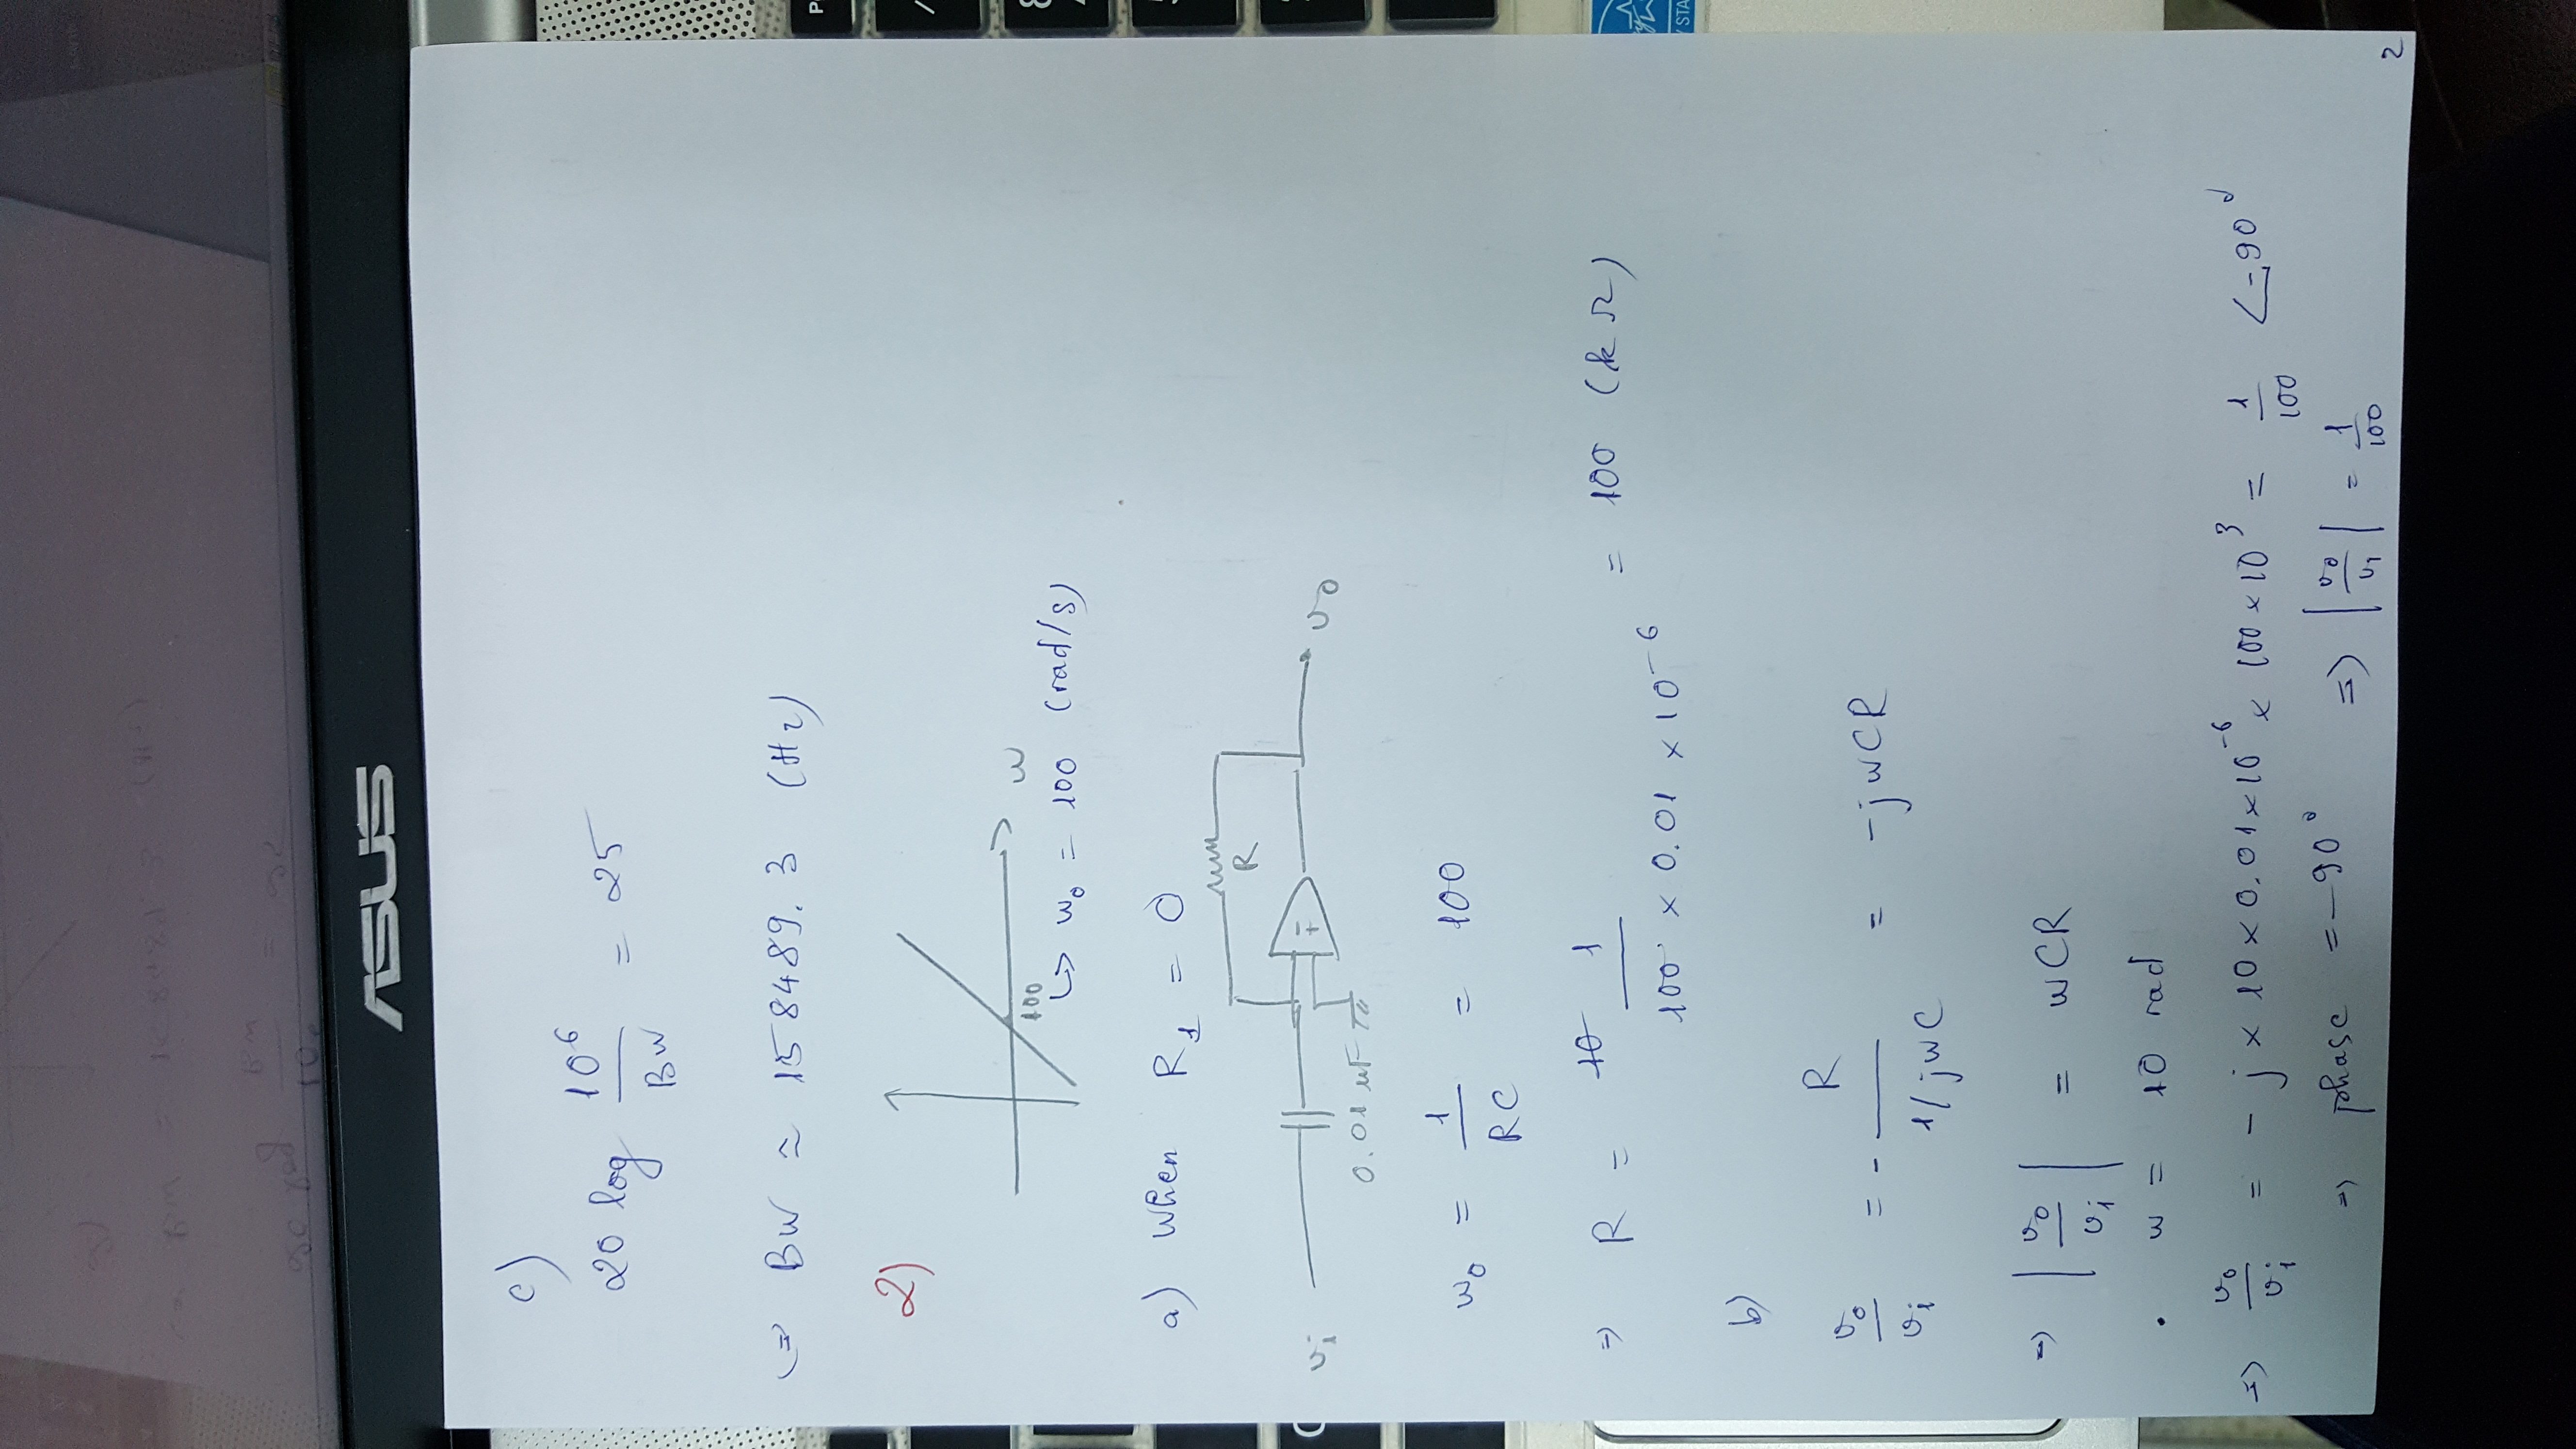 ASUS
c)
20 log 10⁶/BW = 25
(=> BW ≈ 158489.3 (Hz)
2)
w
100
↳ w₀ = 100 (rad/s)
a) When R₁ = 0
R
vᵢ
- +
v₀
0.01 µF
w₀ = 1/RC = 100
=> R = 10 1/100 × 0.01 × 10⁻⁶ = 100 (kΩ)
b)
v₀/vᵢ = - R/1/jwC = -jwCR
=> |v₀/vᵢ| = wCR
. w = 10 rad
=> v₀/vᵢ = - j × 10 × 0.01 × 10⁻⁶ × 100 × 10³ = 1/100 ∠-90°
=> phase = -90° => |v₀/vᵢ| = 1/100
2